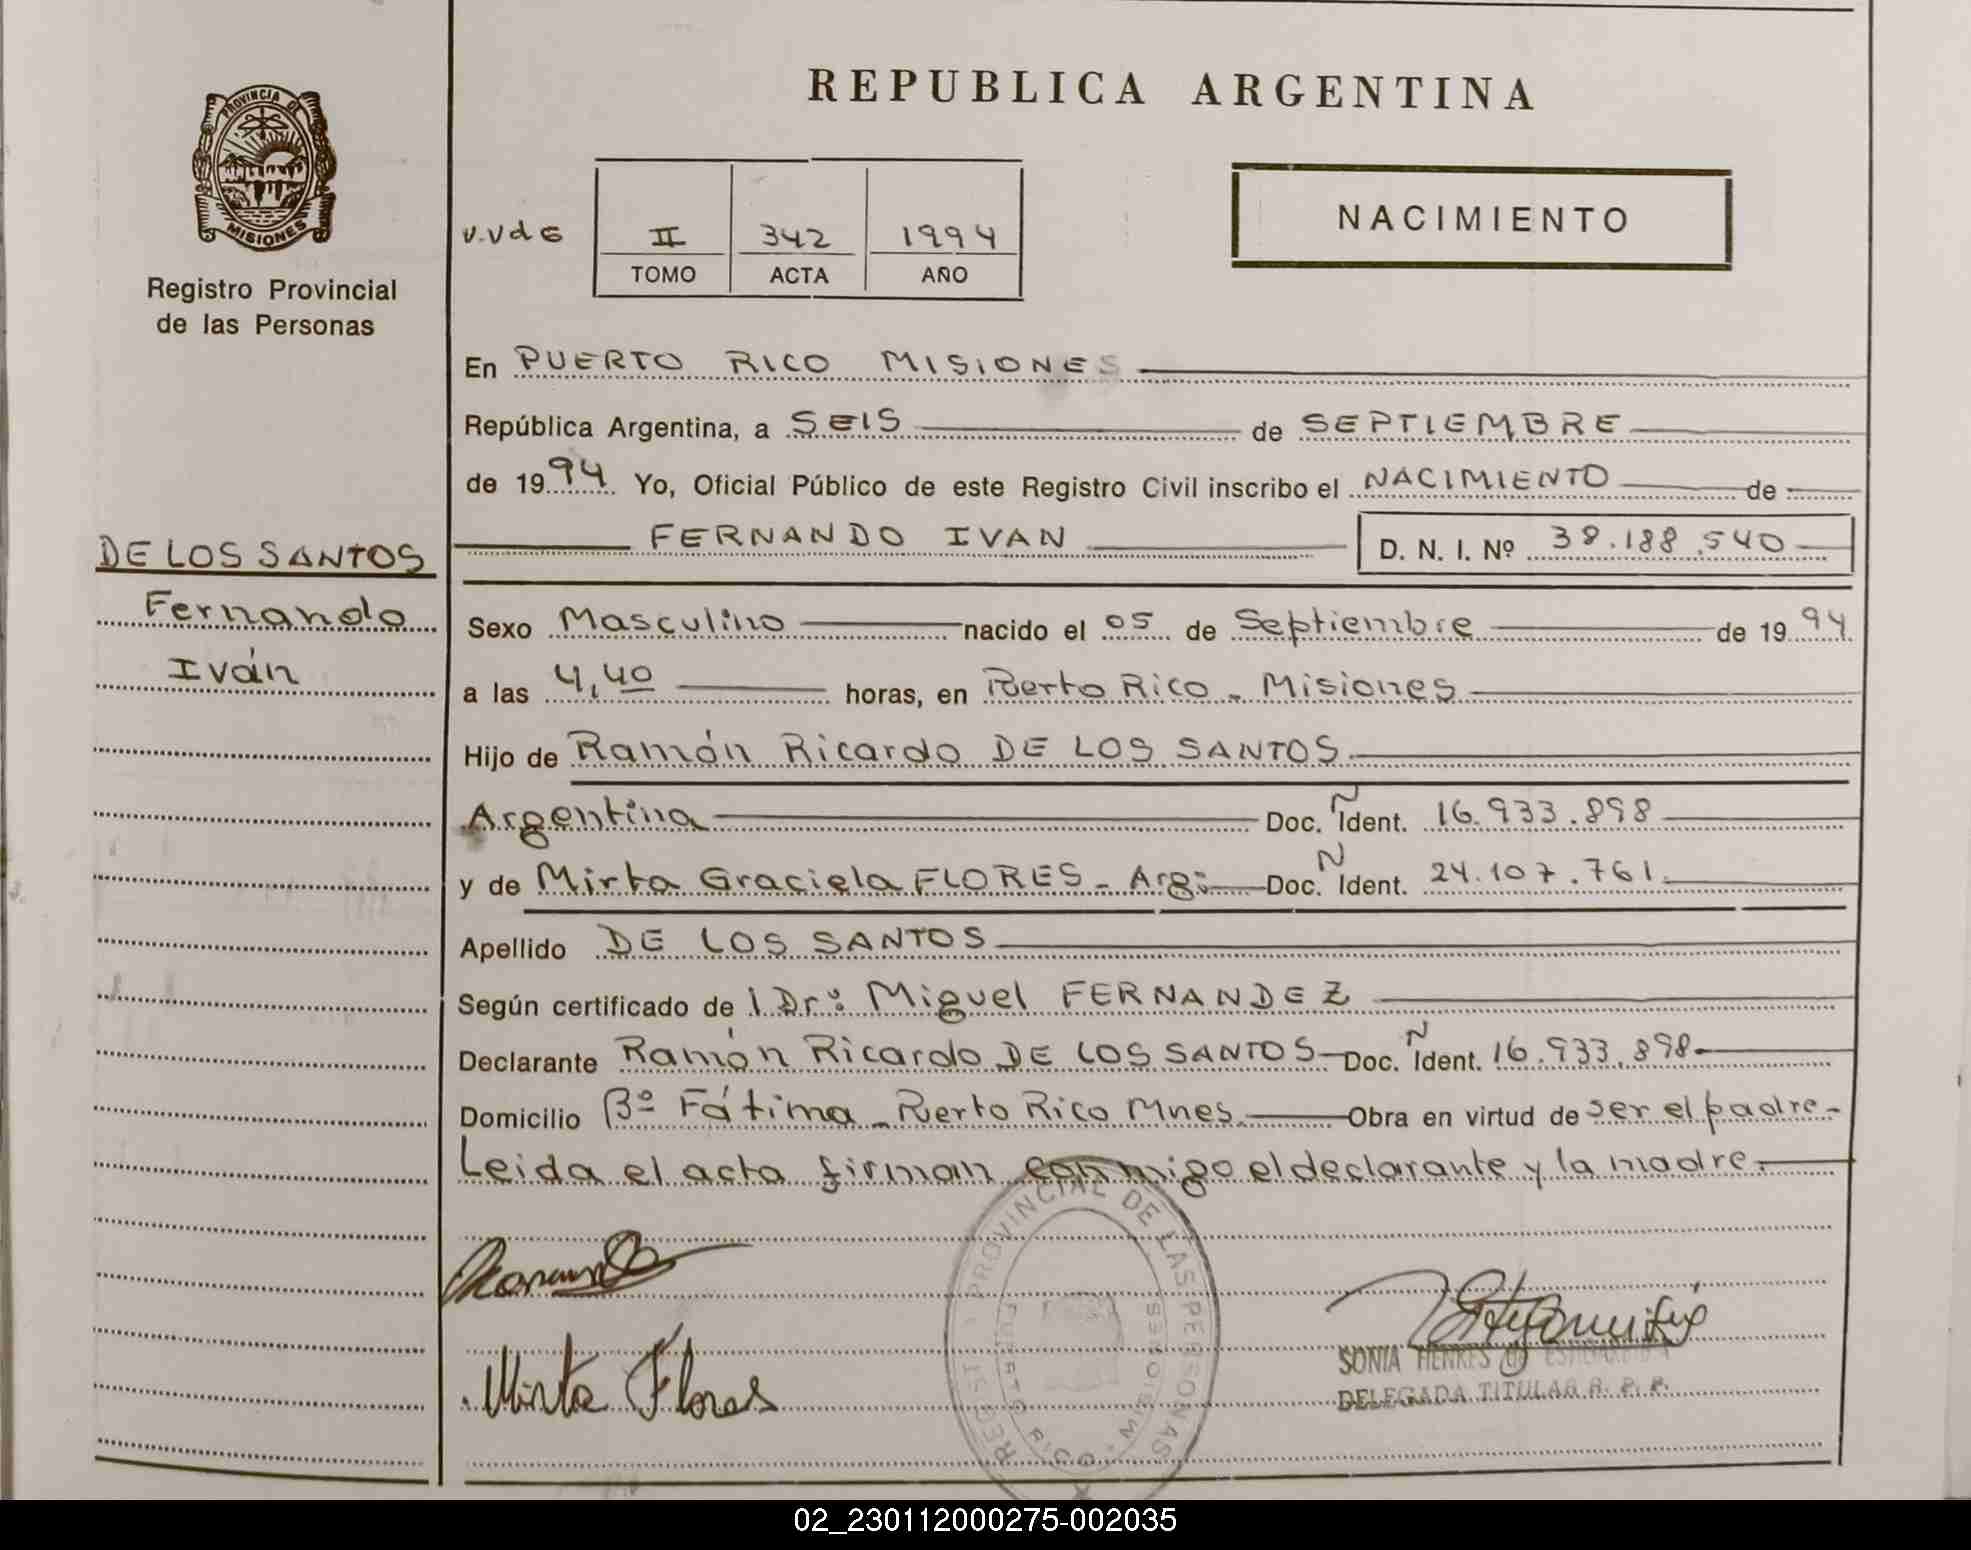 REPUBLICA ARGENTINA
PROVINCIA DE
MISIONES
Registro Provincial
de las Personas
V.V d G
II 342 1994
TOMO ACTA AÑO
NACIMIENTO
En PUERTO RICO MISIONES
República Argentina, a SEIS de SEPTIEMBRE
de 1994 Yo, Oficial Público de este Registro Civil inscribo el NACIMIENTO de
FERNANDO IVAN D. N. I. Nº 38.188.540
DE LOS SANTOS
Fernando
Iván
Sexo Masculino nacido el 05 de Septiembre de 1994
a las 4,40 horas, en Puerto Rico - Misiones
Hijo de Ramón Ricardo DE LOS SANTOS
Argentina Doc. Ñ Ident. 16.933.898
y de Mirta Graciela FLORES - Arg: Doc. Ñ Ident. 24.107.761
Apellido DE LOS SANTOS
Según certificado de l Dr: Miguel FERNANDEZ
Declarante Ramón Ricardo DE LOS SANTOS Doc. Ñ Ident. 16.933.898
Domicilio Bº Fátima - Puerto Rico Mnes. Obra en virtud de ser el padre-
Leida el acta firman conmigo el declarante y la madre.
Mirta Flores
PROVINCIAL DE LAS PERSONAS
PUERTO RICO - MISIONES
SONIA HENKES
DELEGADA TITULAR R. P. P.
02_230112000275-002035